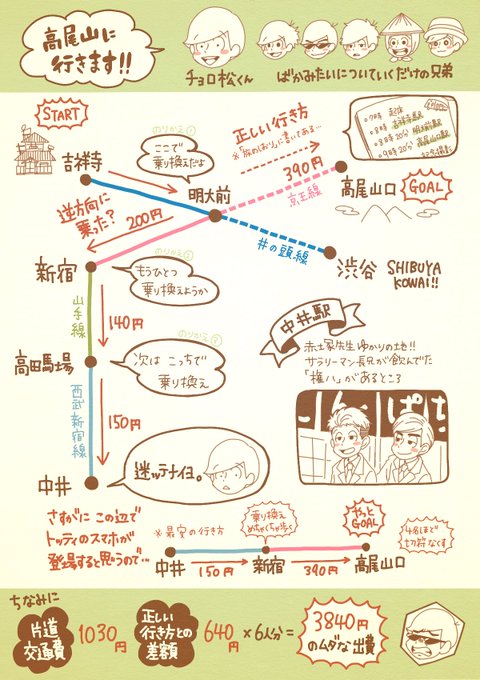 高尾山に
行きます!!
チョロ松くん
ばかみたいについていくだけの兄弟
START
吉祥寺
のりかえ①
ここで
乗り換えだよ
明大前
正しい行き方
※「旅のしおり」に書いてある…
390円
京王線
○7時 起床
○8時 吉祥寺駅
○8時20分 明大前駅
○9時20分 高尾山口駅
高尾山口
GOAL
逆方向に
乗った?
200円
井の頭線
渋谷
SHIBUYA
KOWAI!!
新宿
のりかえ②
もうひとつ
乗り換えようか
山手線
140円
高田馬場
次は こっちで
乗り換え
西武新宿線
150円
中井
迷ッテナイヨ。
中井駅
赤土家先生ゆかりの地!!
サラリーマン長兄が飲んでた
「権八」があるところ
さすがに この辺で
トッティのスマホが
登場すると思うので…
※最安の行き方
乗り換え
めちゃくちゃ歩く
やっと
GOAL
中井
150円
新宿
390円
高尾山口
4名ほど
切符なくす
ちなみに
片道
交通費
1030円
正しい
行き方との
差額
640円
×6人分=
3840円
のムダな出費